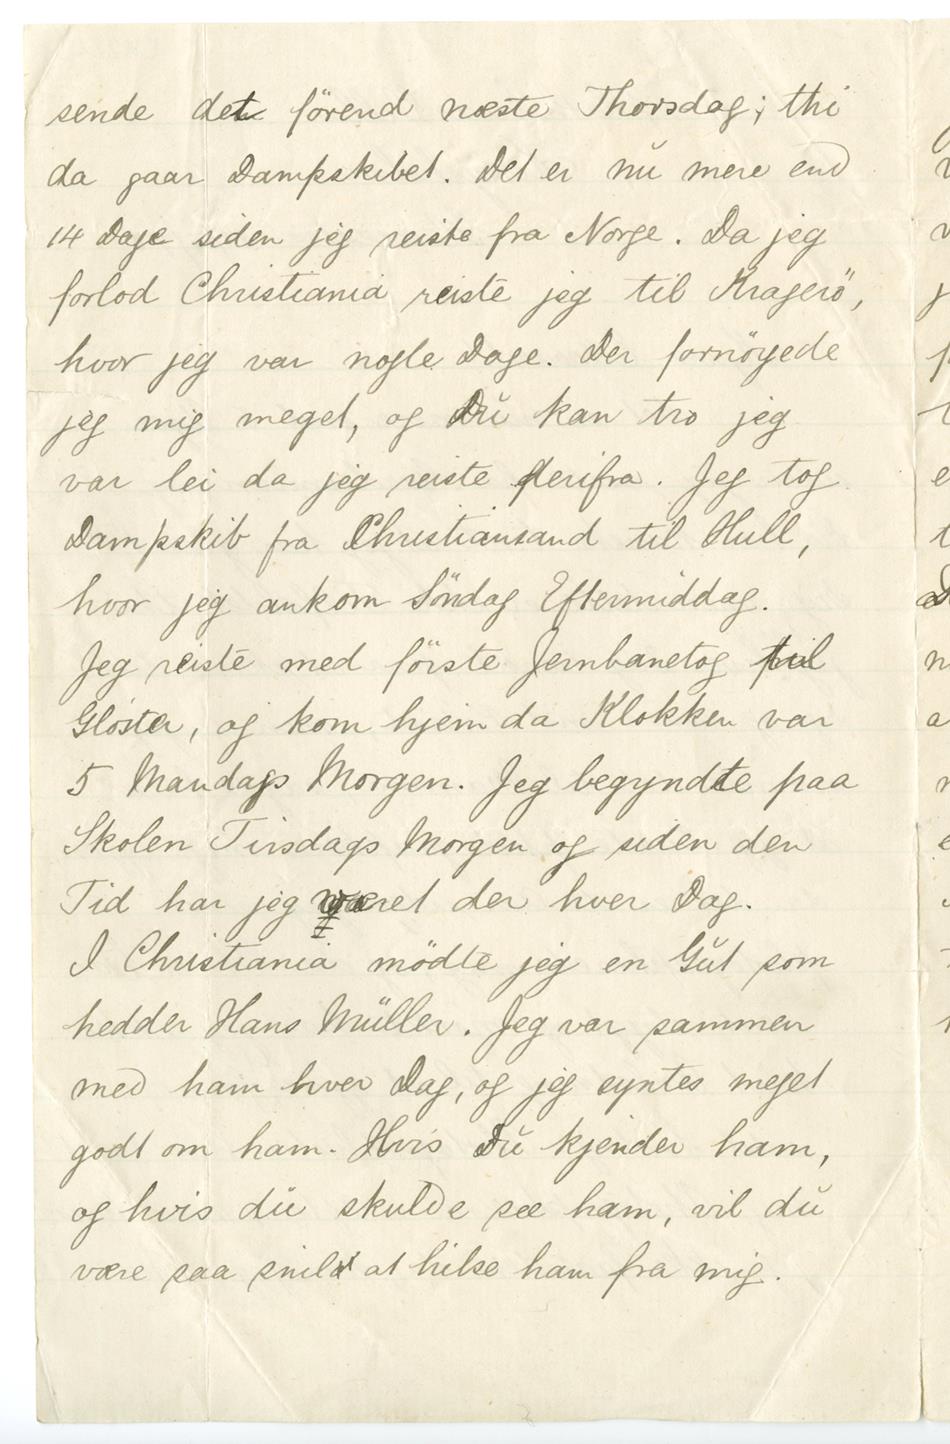 sende det förend næste Thorsdag; thi
da gaar Dampskibet. Det er nŭ mere end
14 Dage siden jeg reiste fra Norge. Da jeg
forlod Christiania reiste jeg til Kragerö,
hvor jeg var nogle Dage. Der fornöyede
jeg mig meget, og Dŭ kan tro jeg
var lei da jeg reiste derifra. Jeg tog
Dampskib fra Christiansand til Hull,
hvor jeg ankom Söndag Eftermiddag.
Jeg reiste med förste Jernbanetog til
Gloster, og kom hjem da Klokken var
5 Mandags Morgen. Jeg begyndte paa
Skolen Tirsdags Morgen og siden den
Tid har jeg været der hver Dag.
I Christiania mödte jeg en Gŭt som
hedder Hans Müller. Jeg var sammen
med ham hver Dag, og jeg syntes meget
godt om ham. Hvis Dŭ kjender ham,
og hvis dŭ skulde see ham, vil dŭ
være saa snild at hilse ham fra mig.